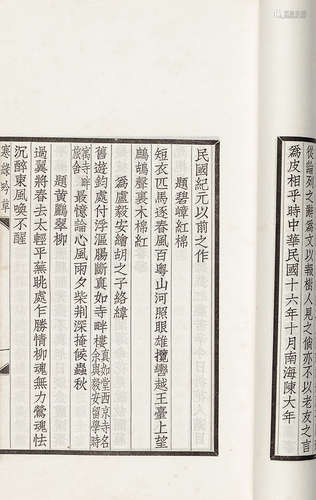 從論列之辭為文以報樹人見之倘亦不以老友之言
為皮相乎時中華民國十六年十月南海陳大年
民國紀元以前之作
題碧嶂紅棉
短衣匹馬逐春風百粵山河照眼雄攬轡越王臺上望
鷓鴣聲裏木棉紅
為盧毅安繪胡之子絡緯
舊遊釣處付浮漚腸斷真如寺畔樓真如堂西京寺名余與毅安留學時
寓寺畔旅舍最憶論心風雨夕柴荆深掩候蟲秋
題黃鸝翠柳
過翼將春去太輕平蕪眺處乍勝情柳魂無力鶯魂怯
沉醉東風喚不醒
寒綠吟草